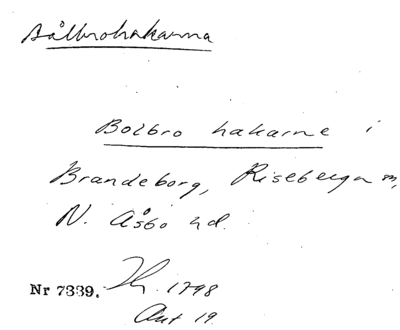 Bålbrohakarna
Bolbro hakarne i
Brandeborg, Riseberga sn,
N. Åsbo hd.
Nr 7339. Th. 1798
Akt 19